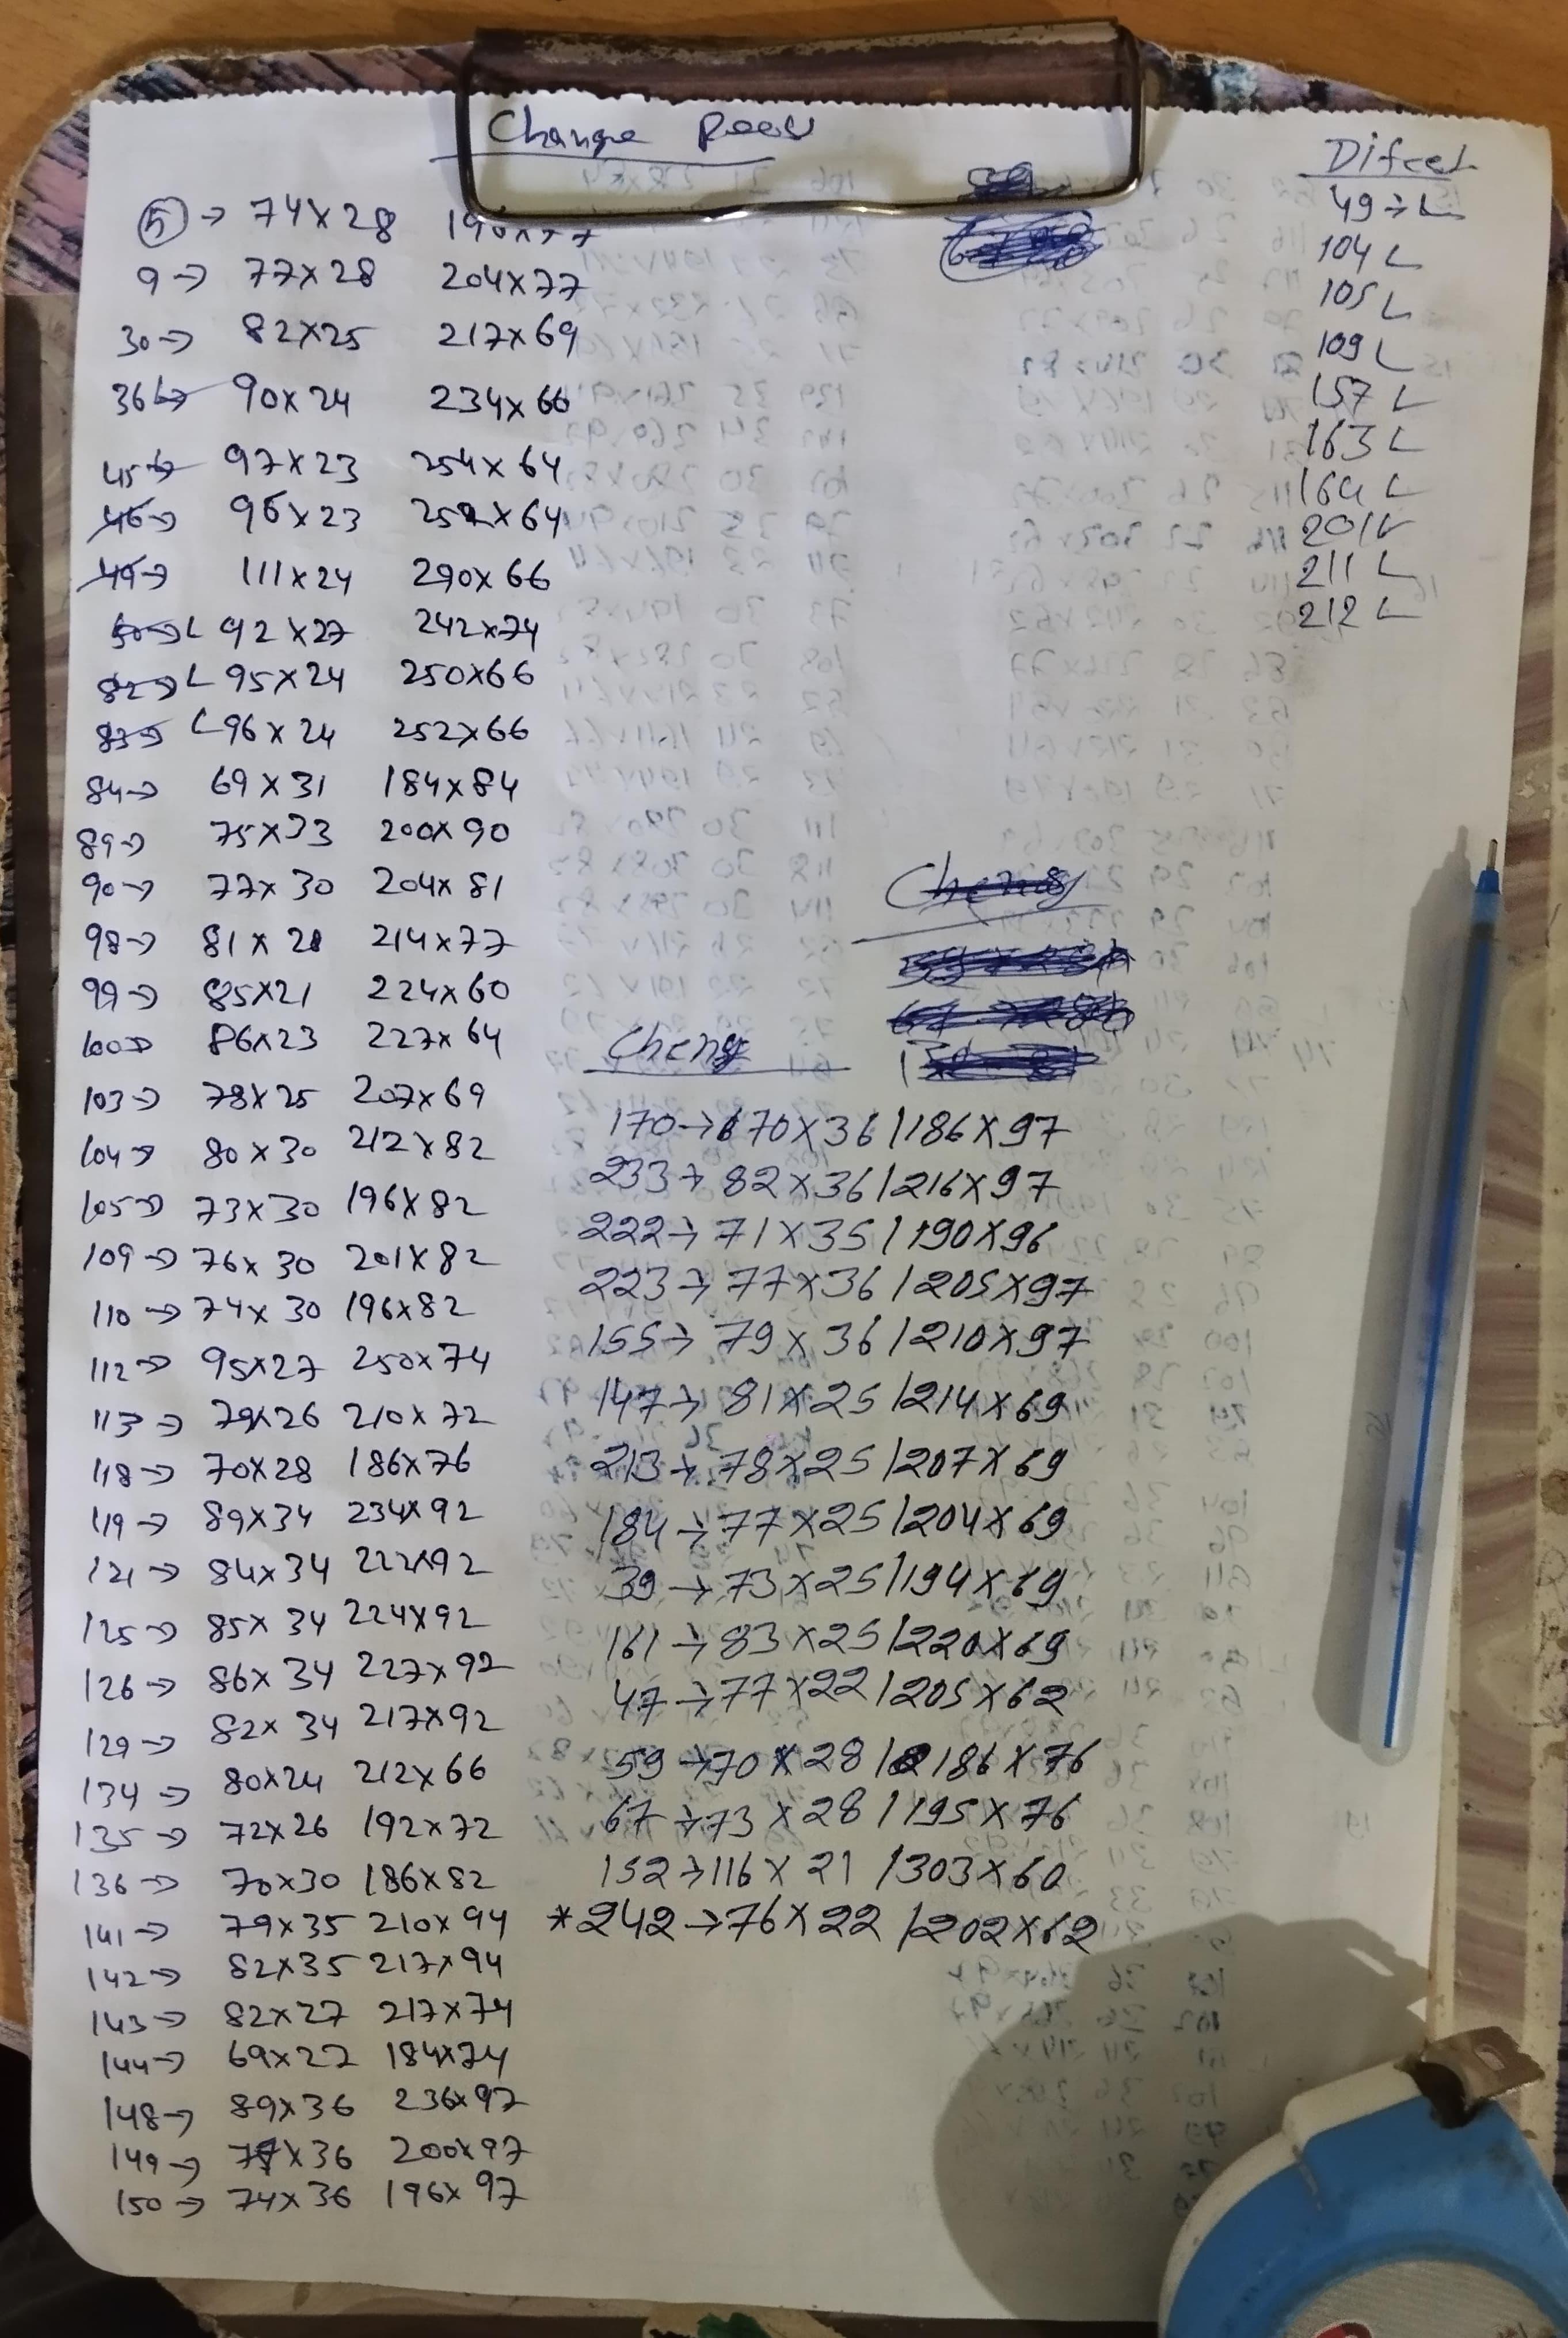 Change
⑤→ 74×28 196×77
9→ 77×28 204×77
30→ 82×25 217×69
36→ 90×24 234×66
45→ 97×23 254×64
46→ 96×23 252×64
49→ 111×24 290×66
50→L 92×27 242×74
82→L 95×24 250×66
83→ L96×24 252×66
84→ 69×31 184×84
89→ 75×33 200×90
90→ 77×30 204×81
98→ 81×28 214×77
99→ 85×21 224×60
100→ 86×23 227×64
103→ 78×25 207×69
104→ 80×30 212×82
105→ 73×30 196×82
109→ 76×30 201×82
110→ 74×30 196×82
112→ 95×27 250×74
113→ 79×26 210×72
118→ 70×28 186×76
119→ 89×34 234×92
121→ 84×34 222×92
125→ 85×34 224×92
126→ 86×34 227×92
129→ 82×34 217×92
134→ 80×24 212×66
135→ 72×26 192×72
136→ 70×30 186×82
141→ 79×35 210×94
142→ 82×35 217×94
143→ 82×27 217×74
144→ 69×27 184×74
148→ 89×36 236×97
149→ ×36 200×97
150→ 74×36 196×97
Cheng
170→ 70×36/186×97
233→ 82×36/216×97
222→ 71×35/190×96
223→ 77×36/205×97
155→ 79×36/210×97
147→ 81×25/214×69
213→ 78×25/207×69
184→ 77×25/204×69
39→ 73×25/194×69
161→ 83×25/220×69
47→ 77×22/205×62
59→ 70×28/186×76
67→ 73×28/195×76
152→ 116×21/303×60
*242→ 76×22/202×62
Difcet
49→L
104 L
105 L
109 L
157 L
163 L
164 L
201 L
211 L
212 L